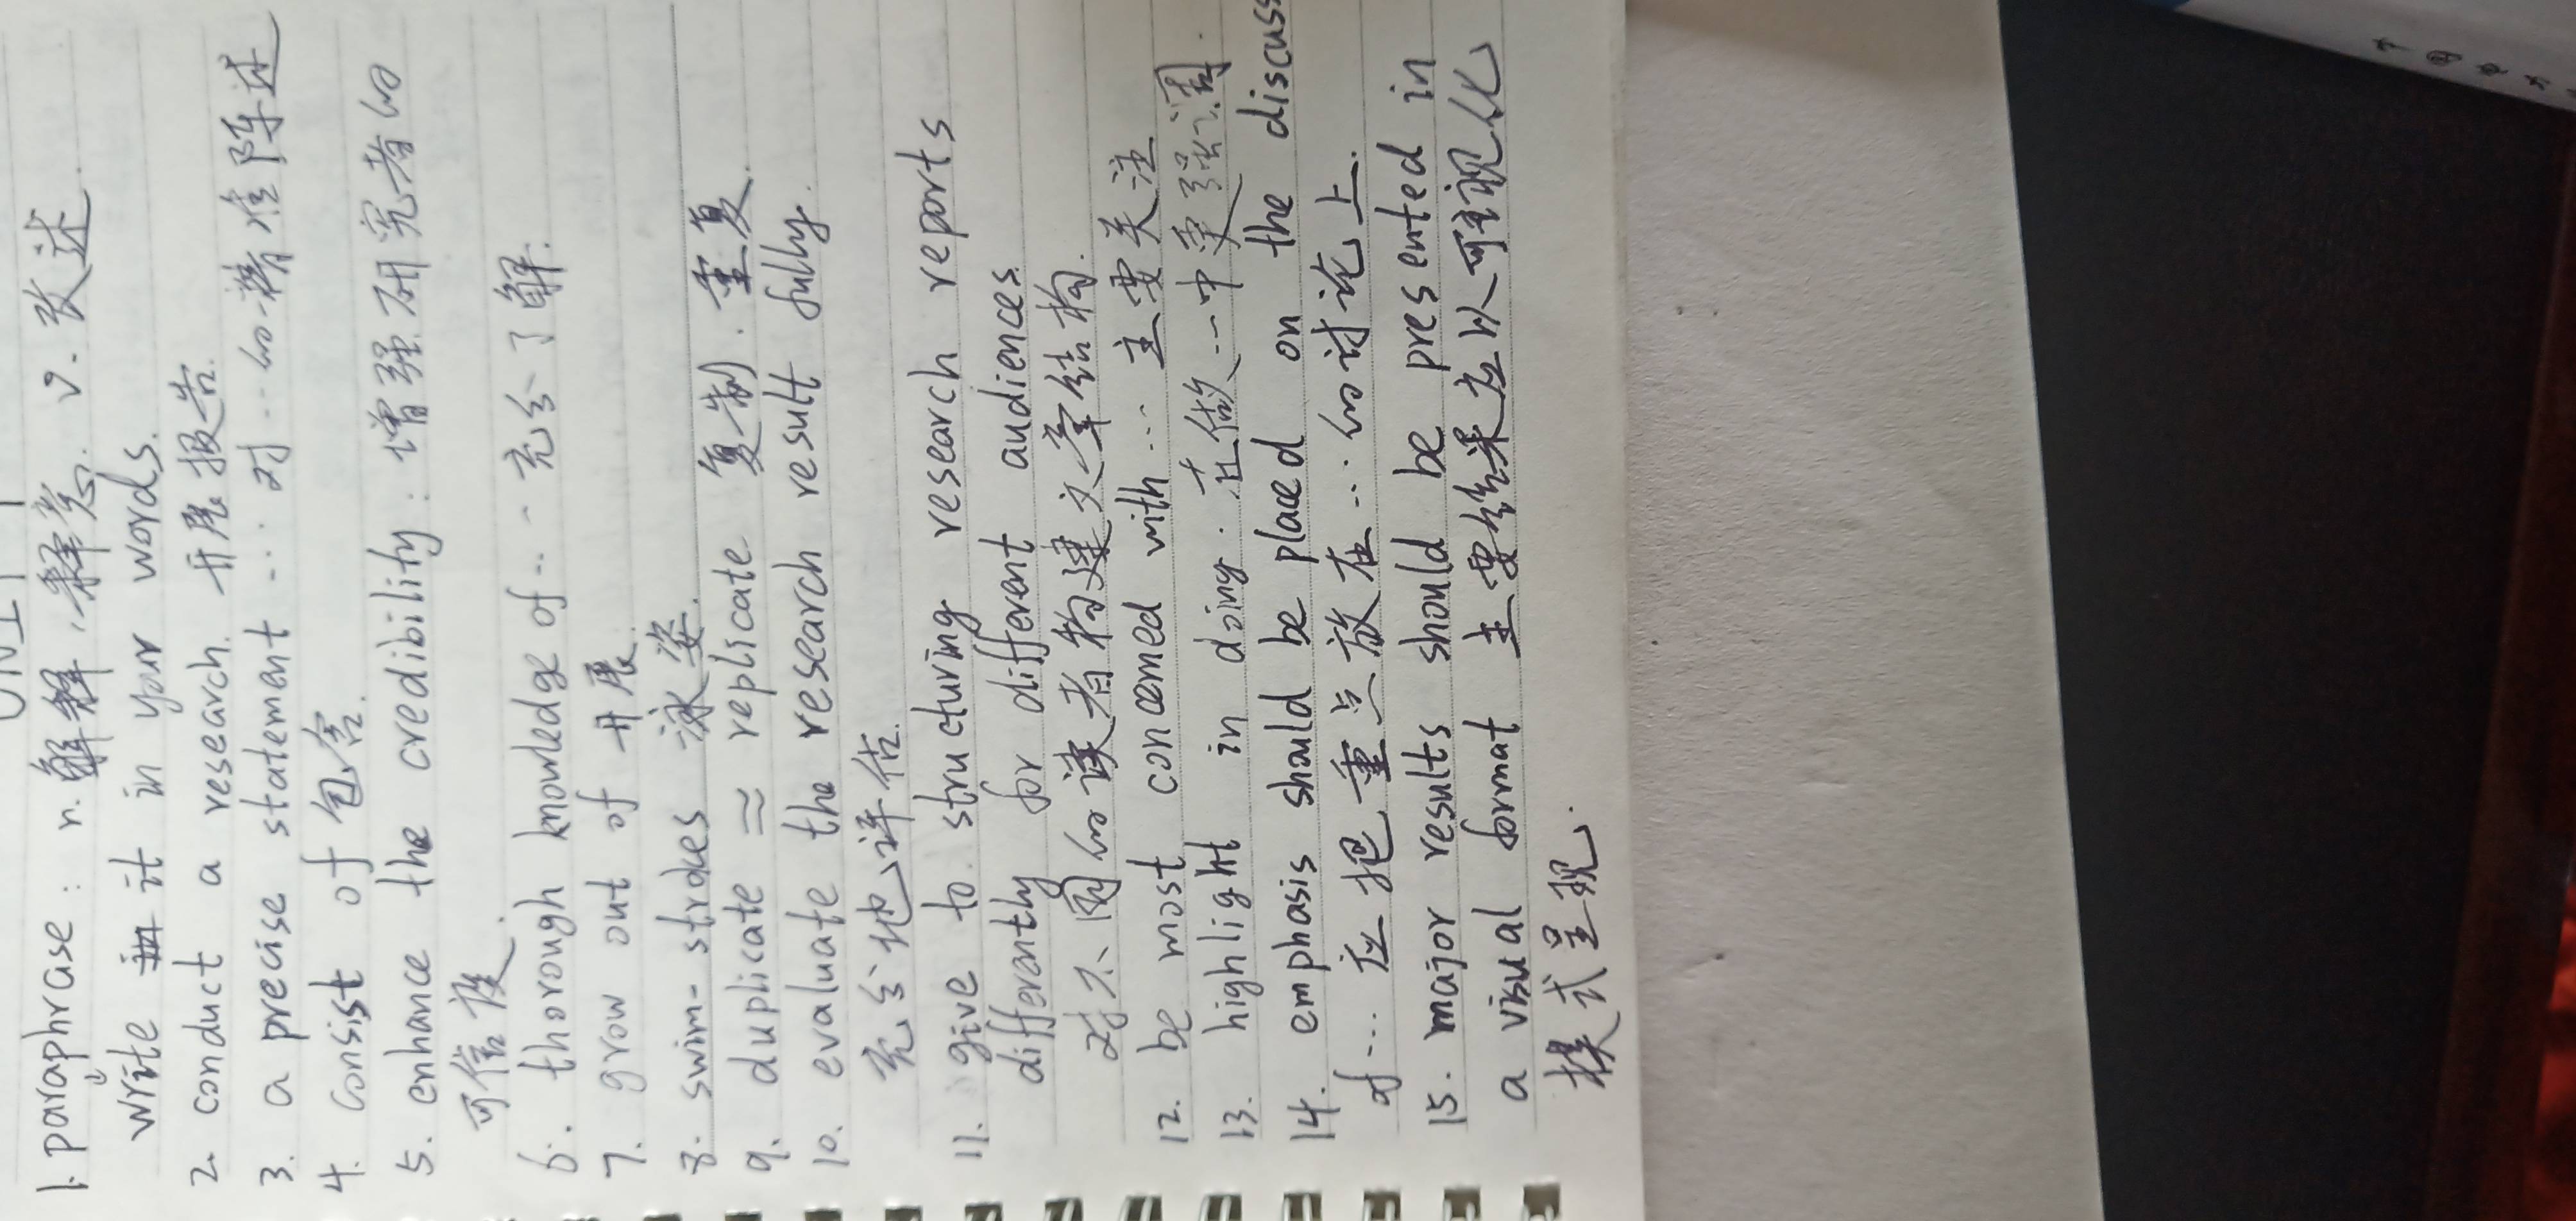 UNIT 1
1. paraphrase: n. 解释,释意. v. 改述.
write it in your words.
2. conduct a research. 开展报告.
3. a precise statement ... 对...的精准陈述
4. consist of 包含.
5. enhance the credibility: 增强研究者的
可信度.
6. thorough knowledge of ... 充分了解.
7. grow out of 开展.
8. swim-strokes 泳姿.
9. duplicate ≈ replicate 复制.重复.
10. evaluate the research result fully.
充分地评估.
11. give to structuring research reports
differently for different audiences.
对不同的读者构建文章结构.
12. be most concerned with ... 主要关注
13. highlight in doing. 在做...中受强调.
14. emphasis should be placed on the discuss
of ... 应把重点放在...的讨论上.
15. major results should be presented in
a visual format 主要结果应以可视化
模式呈现.